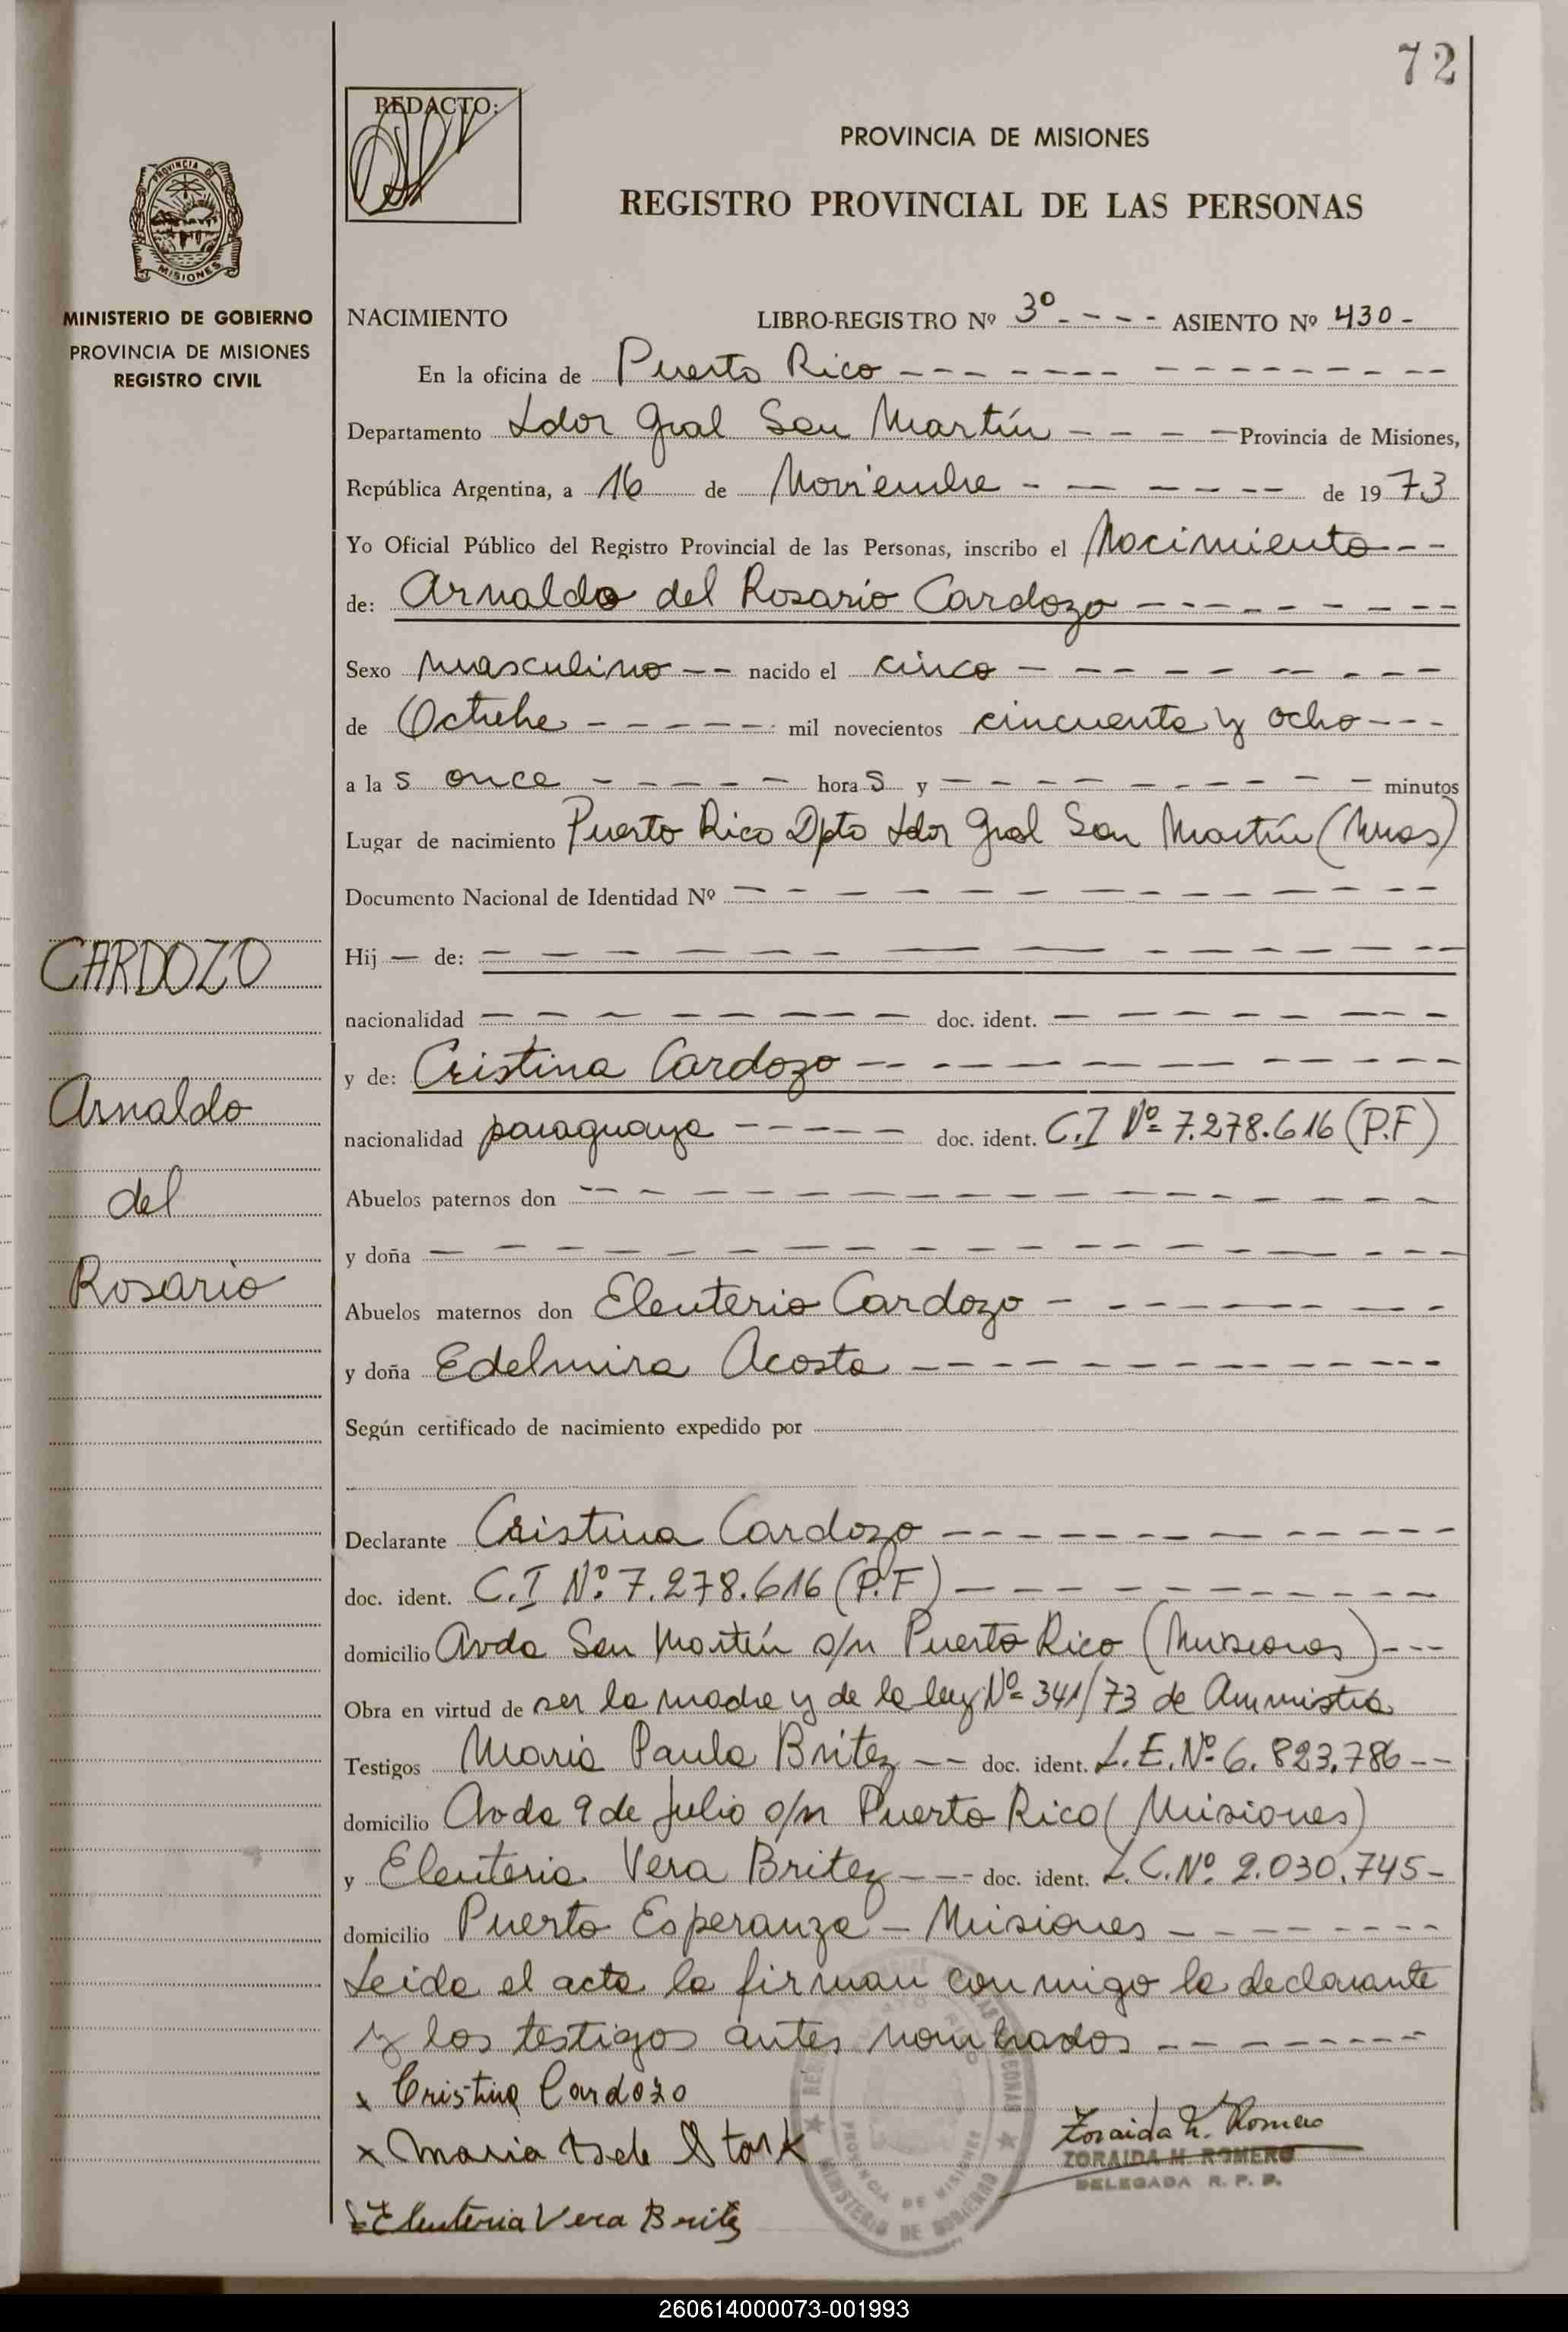 72
REDACTO:
PROVINCIA DE MISIONES
REGISTRO PROVINCIAL DE LAS PERSONAS
PROVINCIA DE
MISIONES
MINISTERIO DE GOBIERNO
PROVINCIA DE MISIONES
REGISTRO CIVIL
NACIMIENTO LIBRO-REGISTRO Nº 3º - - - - ASIENTO Nº 430 -
En la oficina de Puerto Rico
Departamento Ldor Gral San Martín Provincia de Misiones,
República Argentina, a 16 de Noviembre de 1973
Yo Oficial Público del Registro Provincial de las Personas, inscribo el Nacimiento
de: Arnaldo del Rosario Cardozo
Sexo masculino nacido el cinco
de Octubre mil novecientos cincuenta y ocho
a las once horas y minutos
Lugar de nacimiento Puerto Rico Dpto Ldor Gral San Martín (Mnes)
Documento Nacional de Identidad Nº
Hij — de:
nacionalidad doc. ident.
y de: Cristina Cardozo
nacionalidad paraguaya doc. ident. C.I Nº 7.278.616 (P.F)
Abuelos paternos don
y doña
Abuelos maternos don Eleuterio Cardozo
y doña Edelmira Acosta
Según certificado de nacimiento expedido por
Declarante Cristina Cardozo
doc. ident. C.I Nº 7.278.616 (P.F)
domicilio Avda San Martín s/n Puerto Rico (Misiones)
Obra en virtud de ser la madre y de la ley Nº 341/73 de Ammistía
Testigos Maria Paula Britez doc. ident. L.E. Nº 6.823.786
domicilio Avda 9 de Julio s/n Puerto Rico (Misiones)
y Eleuteria Vera Britez doc. ident. L.C. Nº 2.030.745
domicilio Puerto Esperanza - Misiones
Leida el acta la firman conmigo la declarante
y los testigos antes nombrados
x Cristina Cardozo
x Maria Stark
Eleuteria Vera Britez
Zoraida H. Romero
ZORAIDA H. ROMERO
DELEGADA R. P. P.
PROVINCIA DE MISIONES
MINISTERIO DE GOBIERNO
CARDOZO
Arnaldo
del
Rosario
260614000073-001993